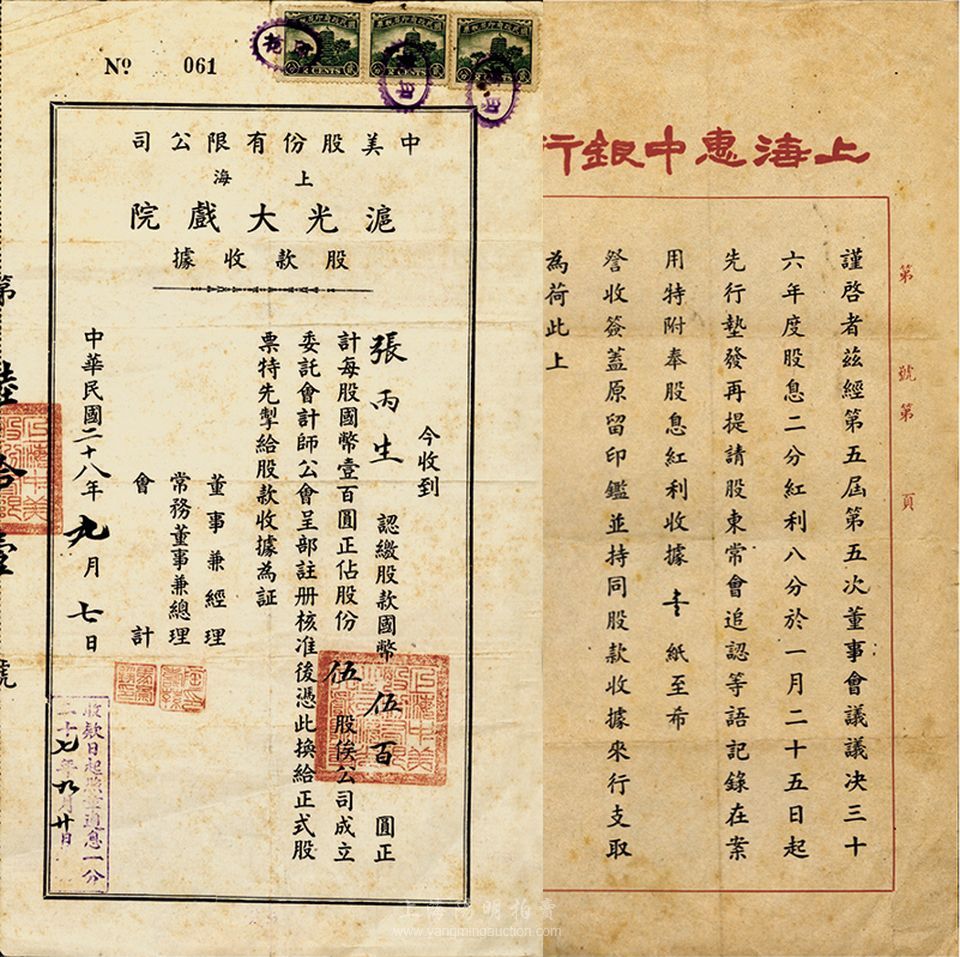 Nº 061
中美股份有限公司
上海
滬光大戲院
股款收據
今收到
張丙生 認繳股款國幣 伍百 圓正
計每股國幣壹百圓正佔股份 伍 股俟公司成立
委託會計師公會呈部註册核准後憑此換給正式股
票特先掣給股款收據為証
董事兼經理
常務董事兼總理
會計
中華民國二十八年 九 月 七 日
收款日起照章週息一分
二十七年九月廿日
第 陸拾壹 號
上海惠中銀行
第 號第 頁
謹啓者茲經第五屆第五次董事會議議决三十
六年度股息二分紅利八分於一月二十五日起
先行墊發再提請股東常會追認等語記錄在案
用特附奉股息紅利收據 壹 紙至希
詧收簽蓋原留印鑑並持同股款收據來行支取
為荷此上
上海陽明拍賣
www.yangmingauction.com